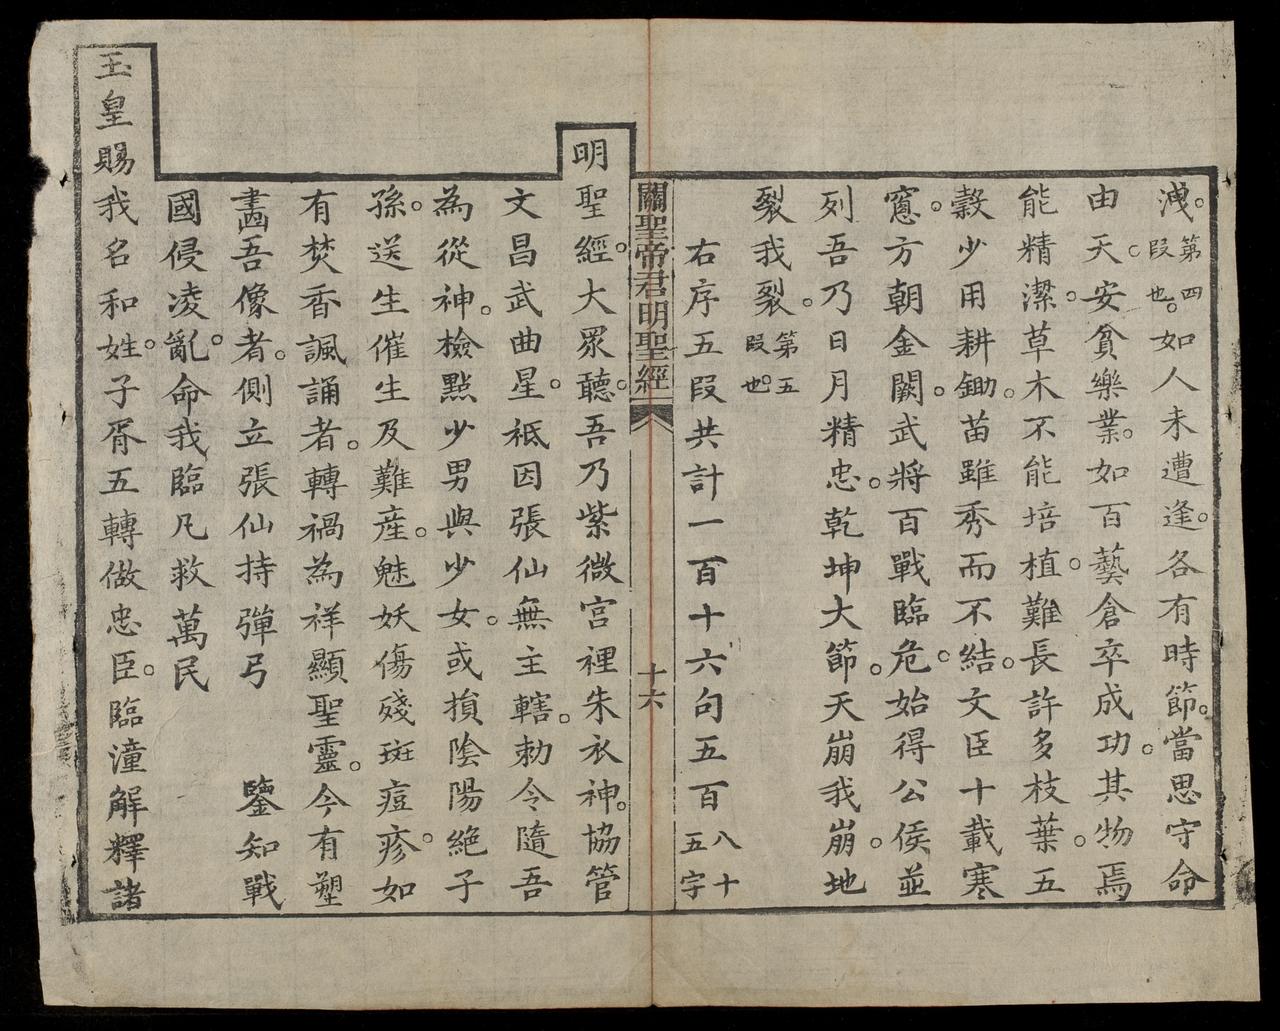 洩。第四段也。如人未遭逢。各有時節。當思守命
由天。安貧樂業。如百藝倉卒成功。其物焉
能精潔。草木不能培植。難長許多枝葉。五
穀少用耕鋤。苗雖秀而不結。文臣十載寒
窻。方朝金闕。武將百戰臨危。始得公侯並
列吾乃日月精忠。乾坤大節。天崩我崩。地
裂我裂。第五段也。
右序五段共計一百十六句五百八十五字
關聖帝君明聖經
十六
明聖經。大眾聽。吾乃紫微宮裡朱衣神。協管
文昌武曲星。祗因張仙無主轄。勅令隨吾
為從神。檢點少男與少女。或損陰陽絕子
孫。送生催生及難產。魅妖傷殘斑痘疹。如
有焚香諷誦者。轉禍為祥顯聖靈。今有塑
畵吾像者。側立張仙持彈弓 鑒知戰
國侵凌亂。命我臨凡救萬民
玉皇賜我名和姓。子胥五轉做忠臣。臨潼解釋諸